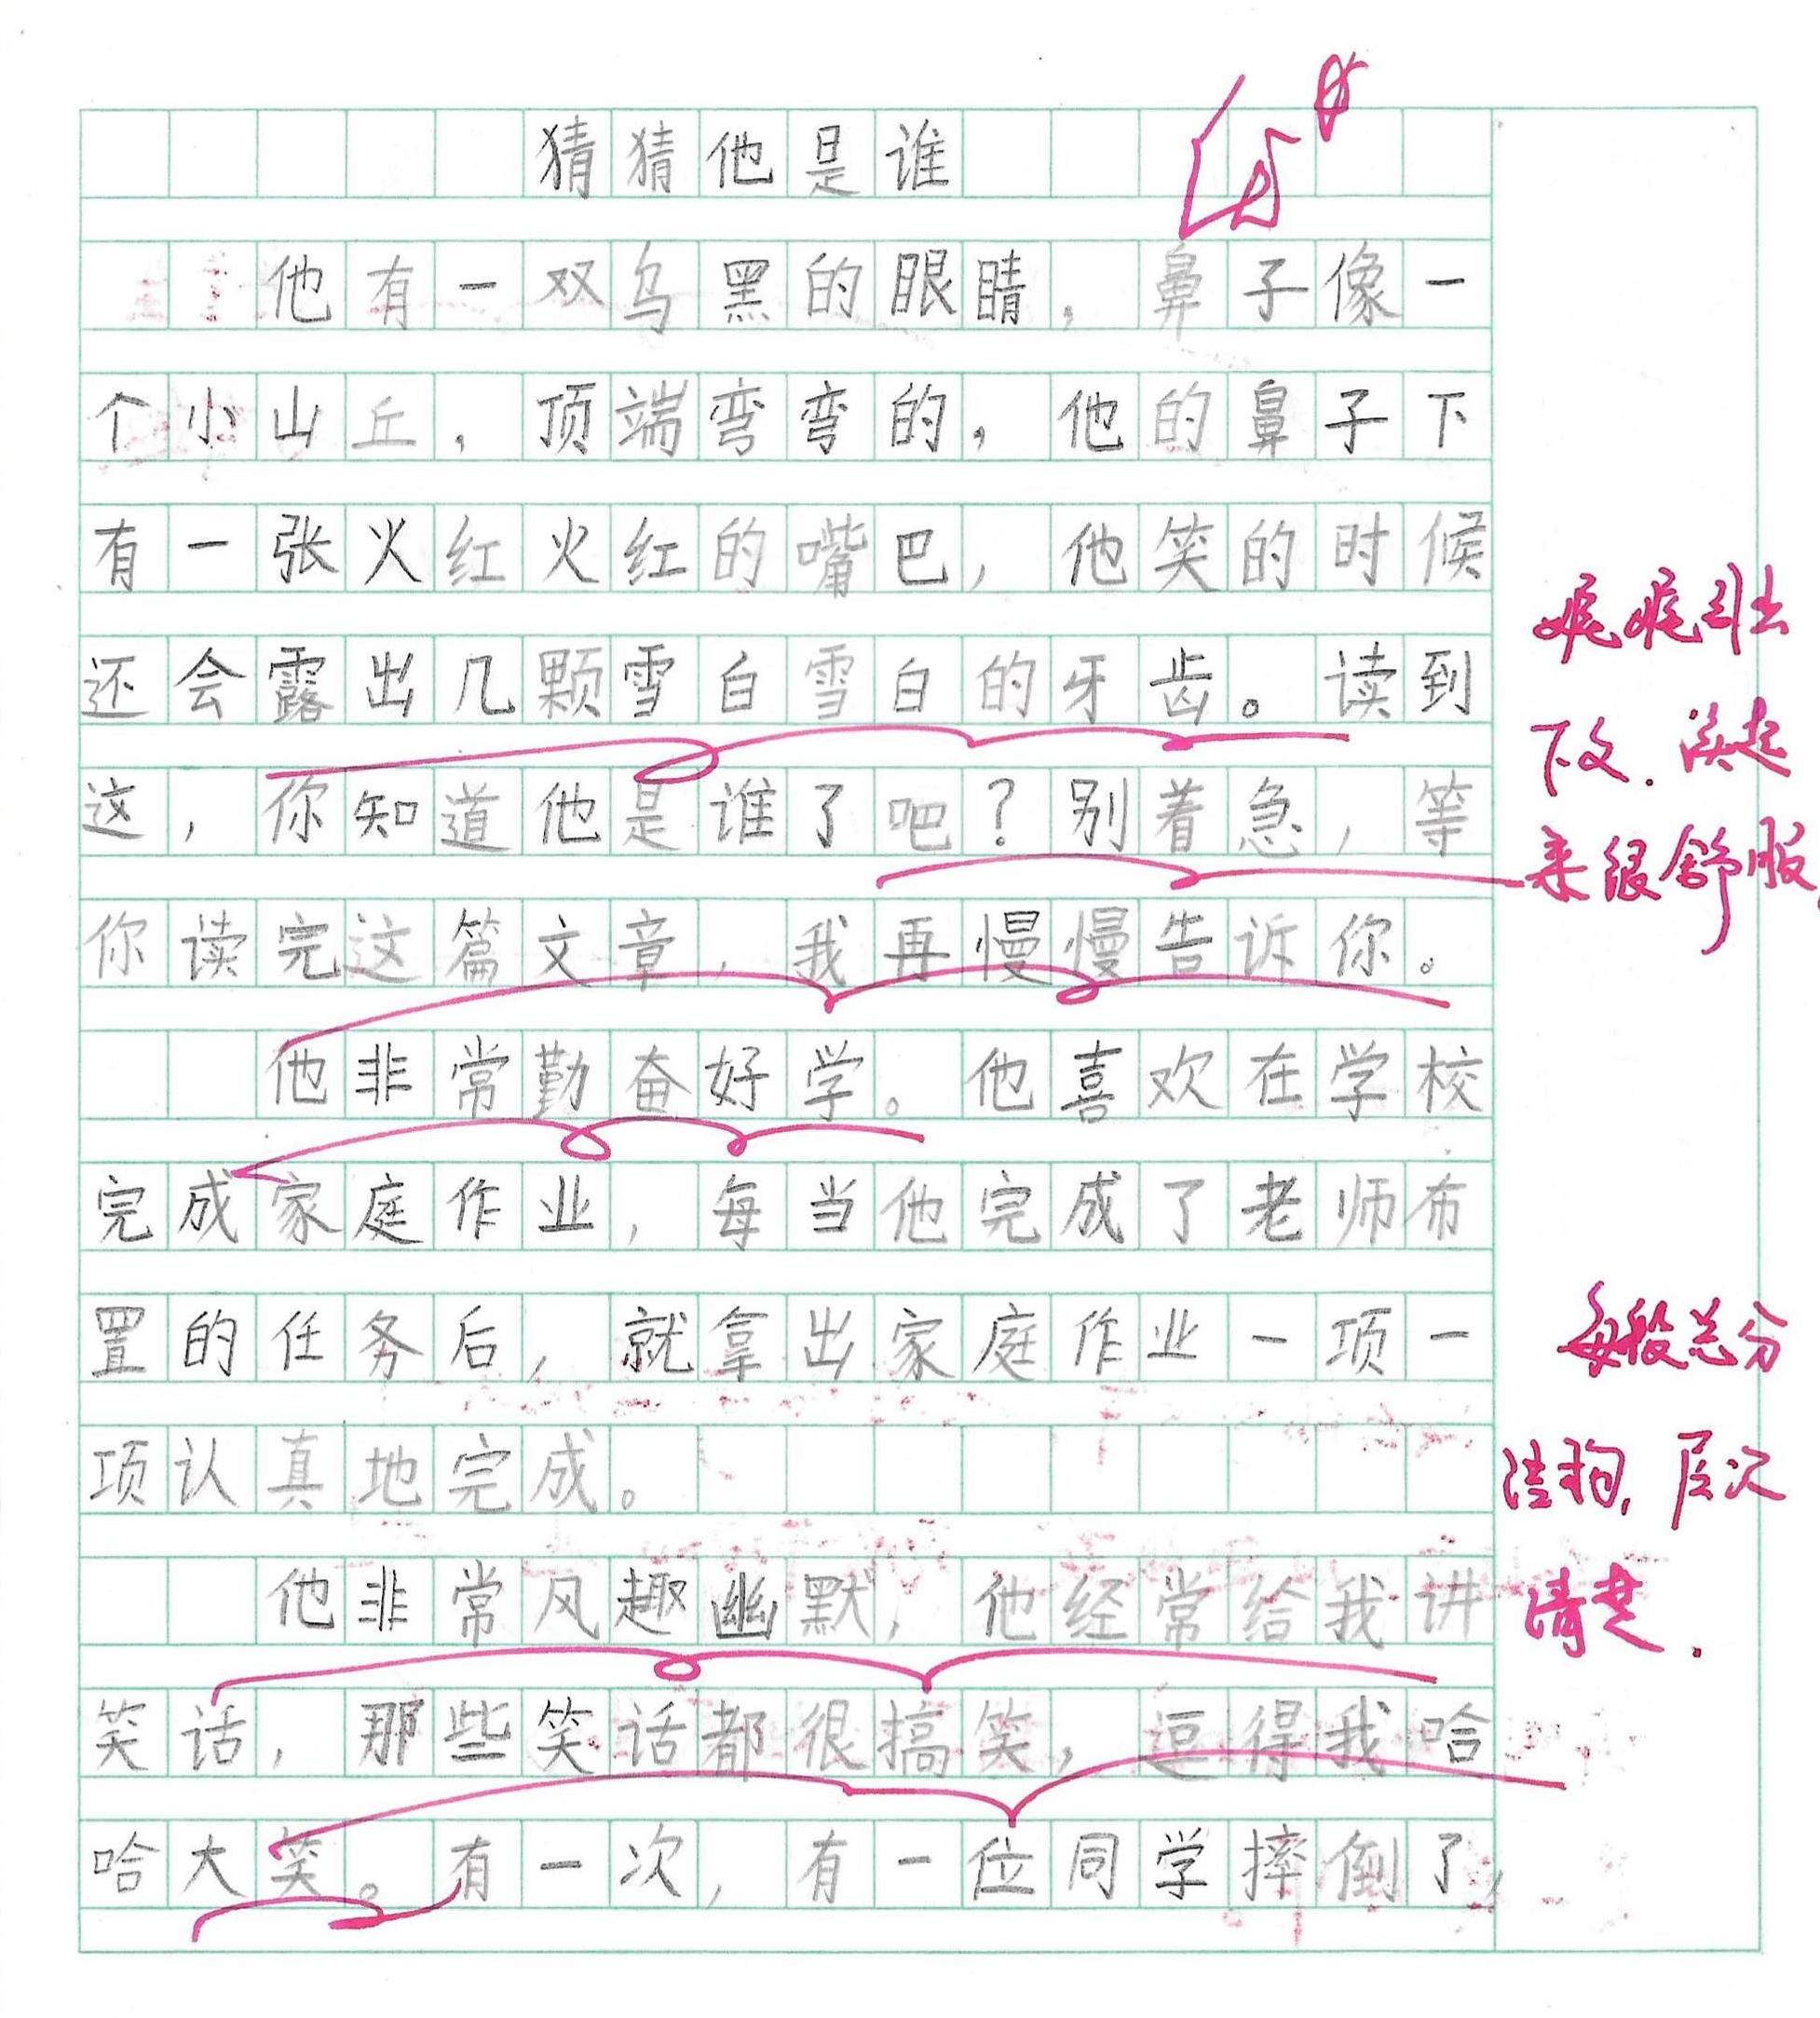 猜猜他是谁
他有一双乌黑的眼睛，鼻子像一
个小山丘，顶端弯弯的，他的鼻子下
有一张火红火红的嘴巴，他笑的时候
还会露出几颗雪白雪白的牙齿。读到
这，你知道他是谁了吧？别着急，等
你读完这篇文章，我再慢慢告诉你。
他非常勤奋好学。他喜欢在学校
完成家庭作业，每当他完成了老师布
置的任务后，就拿出家庭作业一项一
项认真地完成。
他非常风趣幽默，他经常给我讲
笑话，那些笑话都很搞笑，逗得我哈
哈大笑。有一次，有一位同学摔倒了，
娓娓引出
下文．读起
来很舒服，
每段总分
结构，层次
清楚．